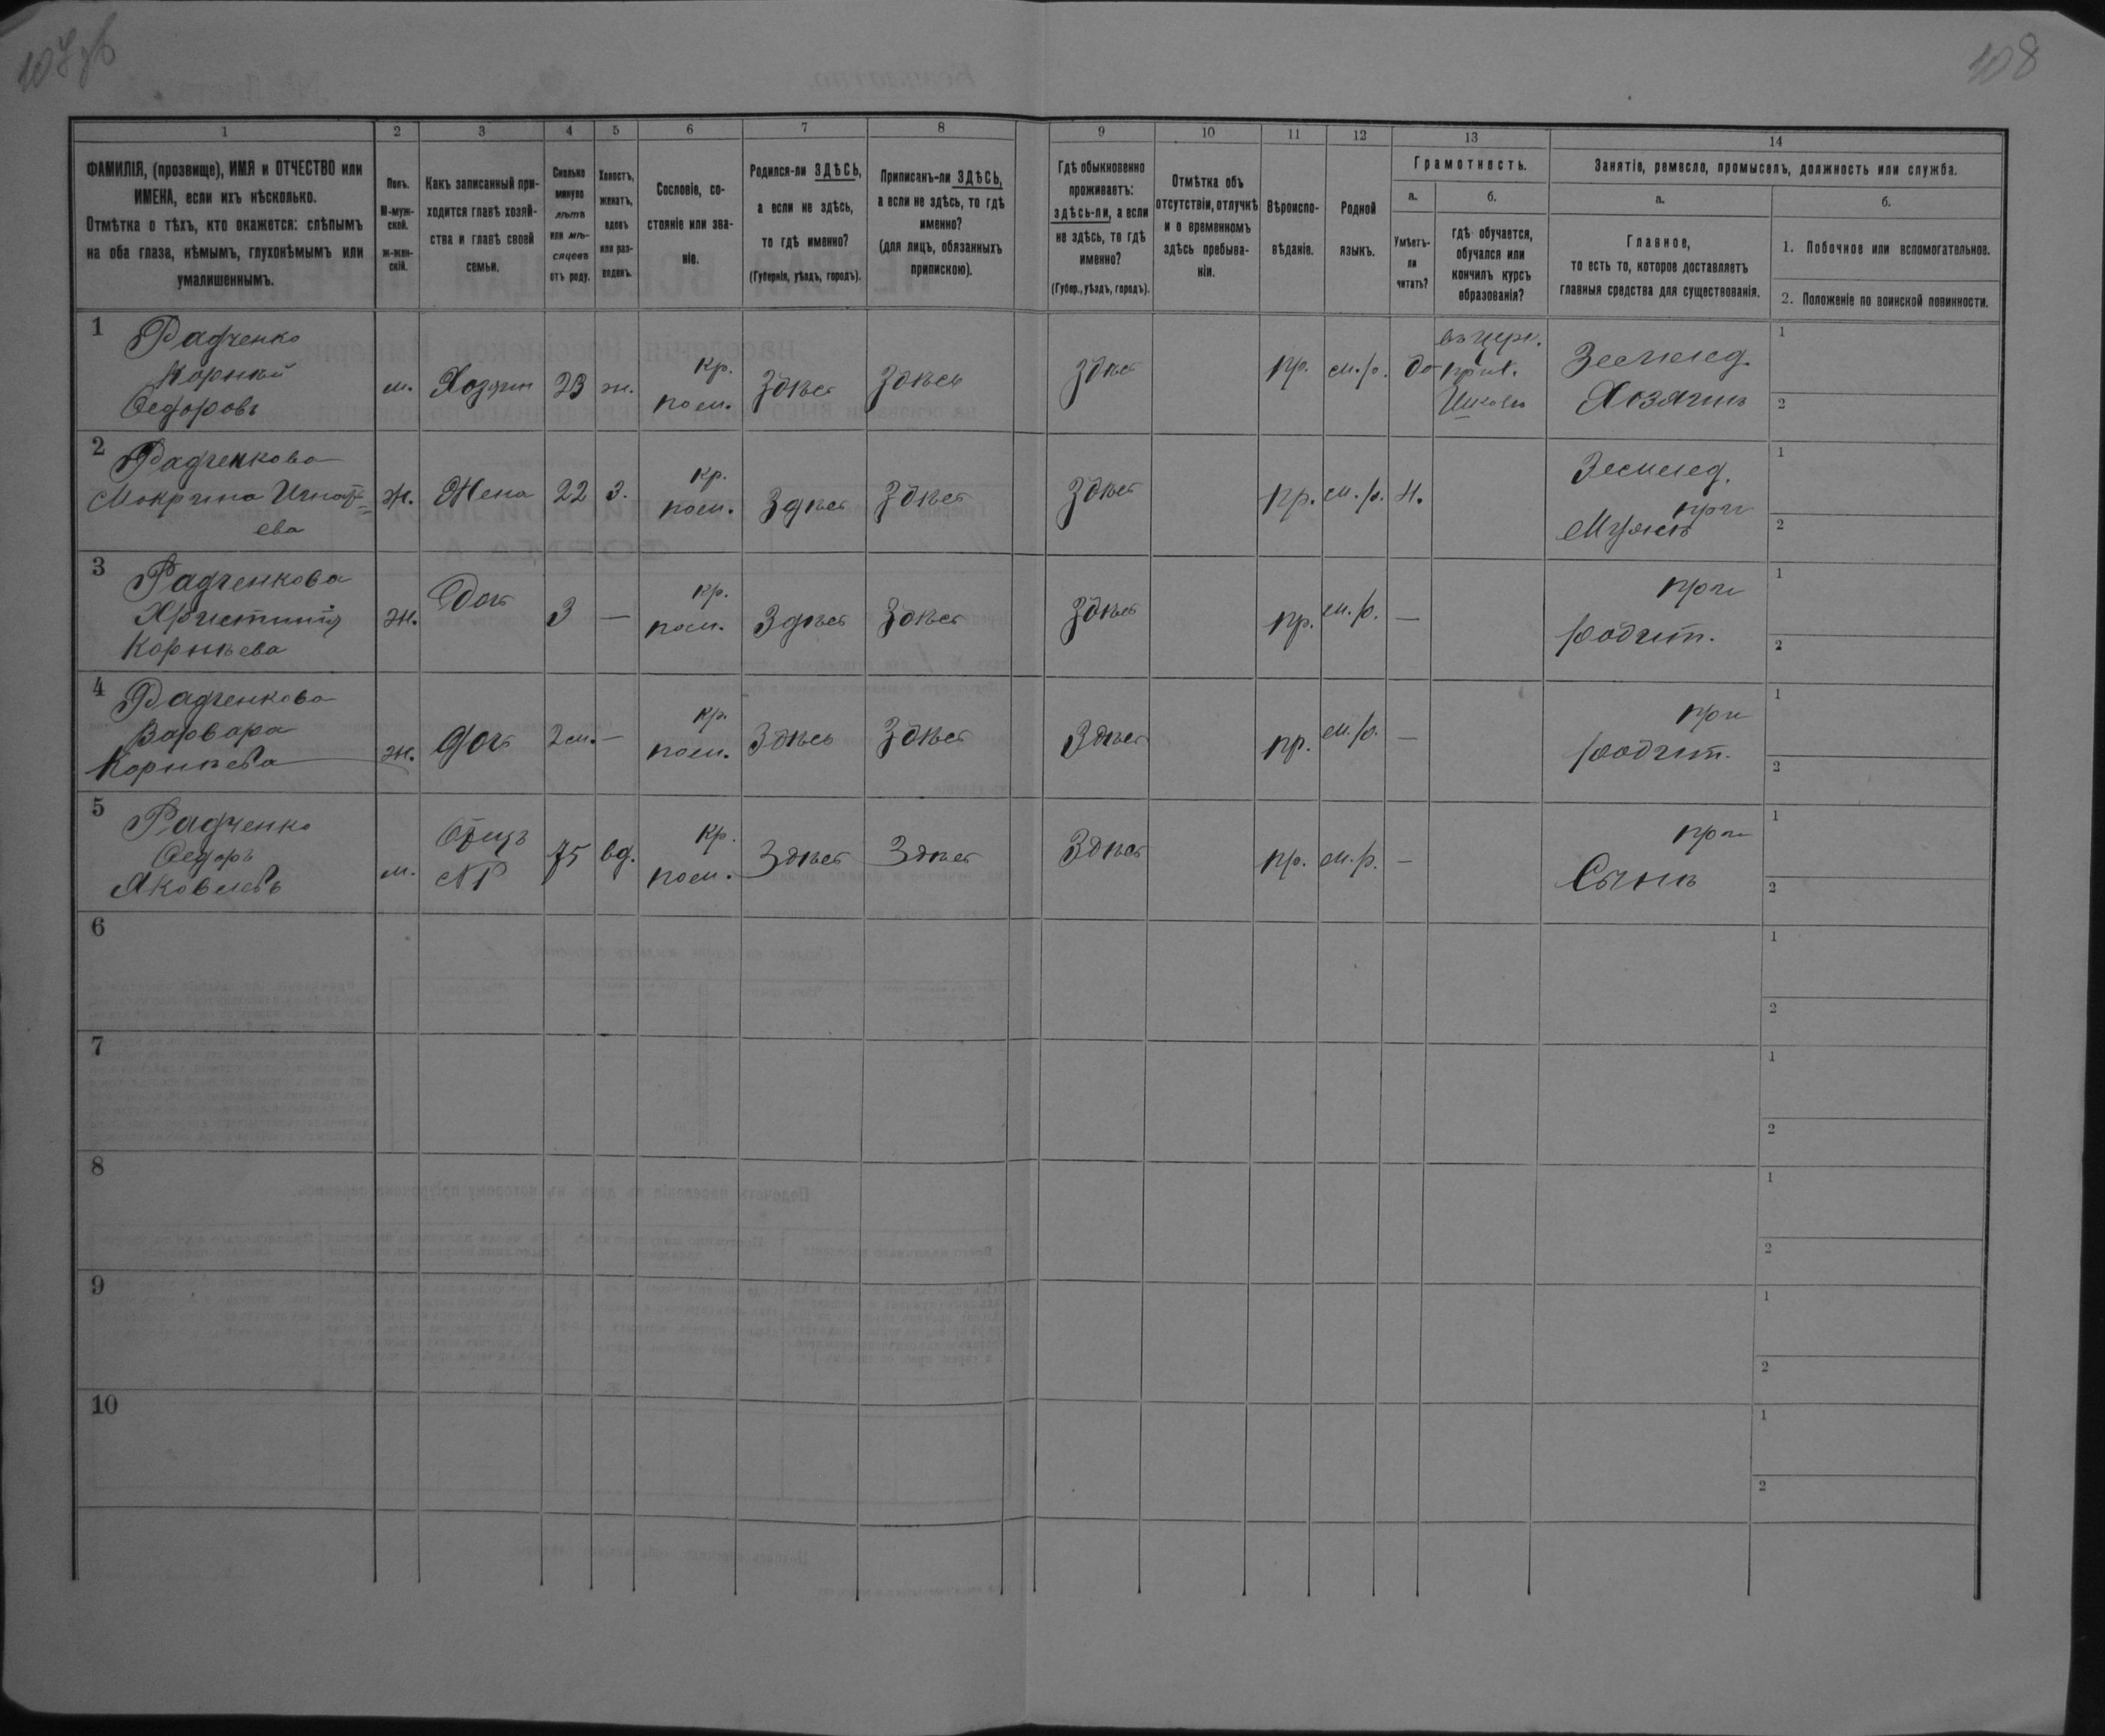 107об
108
1
2
3
4
5
6
7
8
9
10
11
12
13
14
ФАМИЛІЯ, (прозвище), ИМЯ и ОТЧЕСТВО или
ИМЕНА, если ихъ нѣсколько.
Отмѣтка о тѣхъ, кто окажется: слѣпымъ
на оба глаза, нѣмымъ, глухонѣмымъ или
умалишеннымъ.
Полъ.
М-муж-
ской.
ж-жен-
скій.
Какъ записанный при-
ходится главѣ хозяй-
ства и главѣ своей
семьи.
Сколько
минуло
лѣтъ
или мѣ-
сяцевъ
отъ роду.
Холостъ,
женатъ,
вдовъ
или раз-
веденъ.
Сословіе, со-
стояніе или зва-
ніе.
Родился-ли ЗДѢСЬ,
а если не здѣсь,
то гдѣ именно?
(Губернія, уѣздъ, городъ).
Приписанъ-ли ЗДѢСЬ,
а если не здѣсь, то гдѣ
именно?
(для лицъ, обязанныхъ
припискою).
Гдѣ обыкновенно
проживаетъ:
здѣсь-ли, а если
не здѣсь, то гдѣ
именно?
(Губер., уѣздъ, городъ).
Отмѣтка объ
отсутствіи, отлучкѣ
и о временномъ
здѣсь пребыва-
ніи.
Вѣроиспо-
вѣданіе.
Родной
языкъ.
Грамотность.
а.
Умѣетъ-
ли
читать?
б.
гдѣ обучается,
обучался или
кончилъ курсъ
образованія?
Занятіе, ремесло, промыселъ, должность или служба.
а.
Главное,
то есть то, которое доставляетъ
главныя средства для существованія.
б.
1. Побочное или вспомогательное.
2. Положеніе по воинской повинности.
1 Радченко
Корнѣй
Ѳедоровъ
м. Хозяин 23 ж. кр. пом. Здѣсь Здѣсь Здѣсь пр. м.р. да
въ церк.
прих.
Школѣ
Земелед.
Хозяинъ
1
2
2 Радченкова
Мокрина Игнатъ-
ева
ж. Жена 22 з. кр. пом. Здѣсь Здѣсь Здѣсь пр. м.р. н.
Земелед.
при
Мужѣ
1
2
3 Радченкова
Христинія
Корнѣева
ж. Доч 3 — кр. пом. Здѣсь Здѣсь Здѣсь пр. м.р. —
при
родит.
1
2
4 Радченкова
Варвара
Корнѣева
ж. доч 2 м. — кр. пом. Здѣсь Здѣсь Здѣсь пр. м.р. —
при
родит.
1
2
5 Радченко
Ѳедоръ
Яковлевъ
м. Отецъ 75 вд. кр. пом. Здѣсь Здѣсь Здѣсь пр. м.р. —
при
Сынѣ
1
2
6
1
2
7
1
2
8
1
2
9
1
2
10
1
2